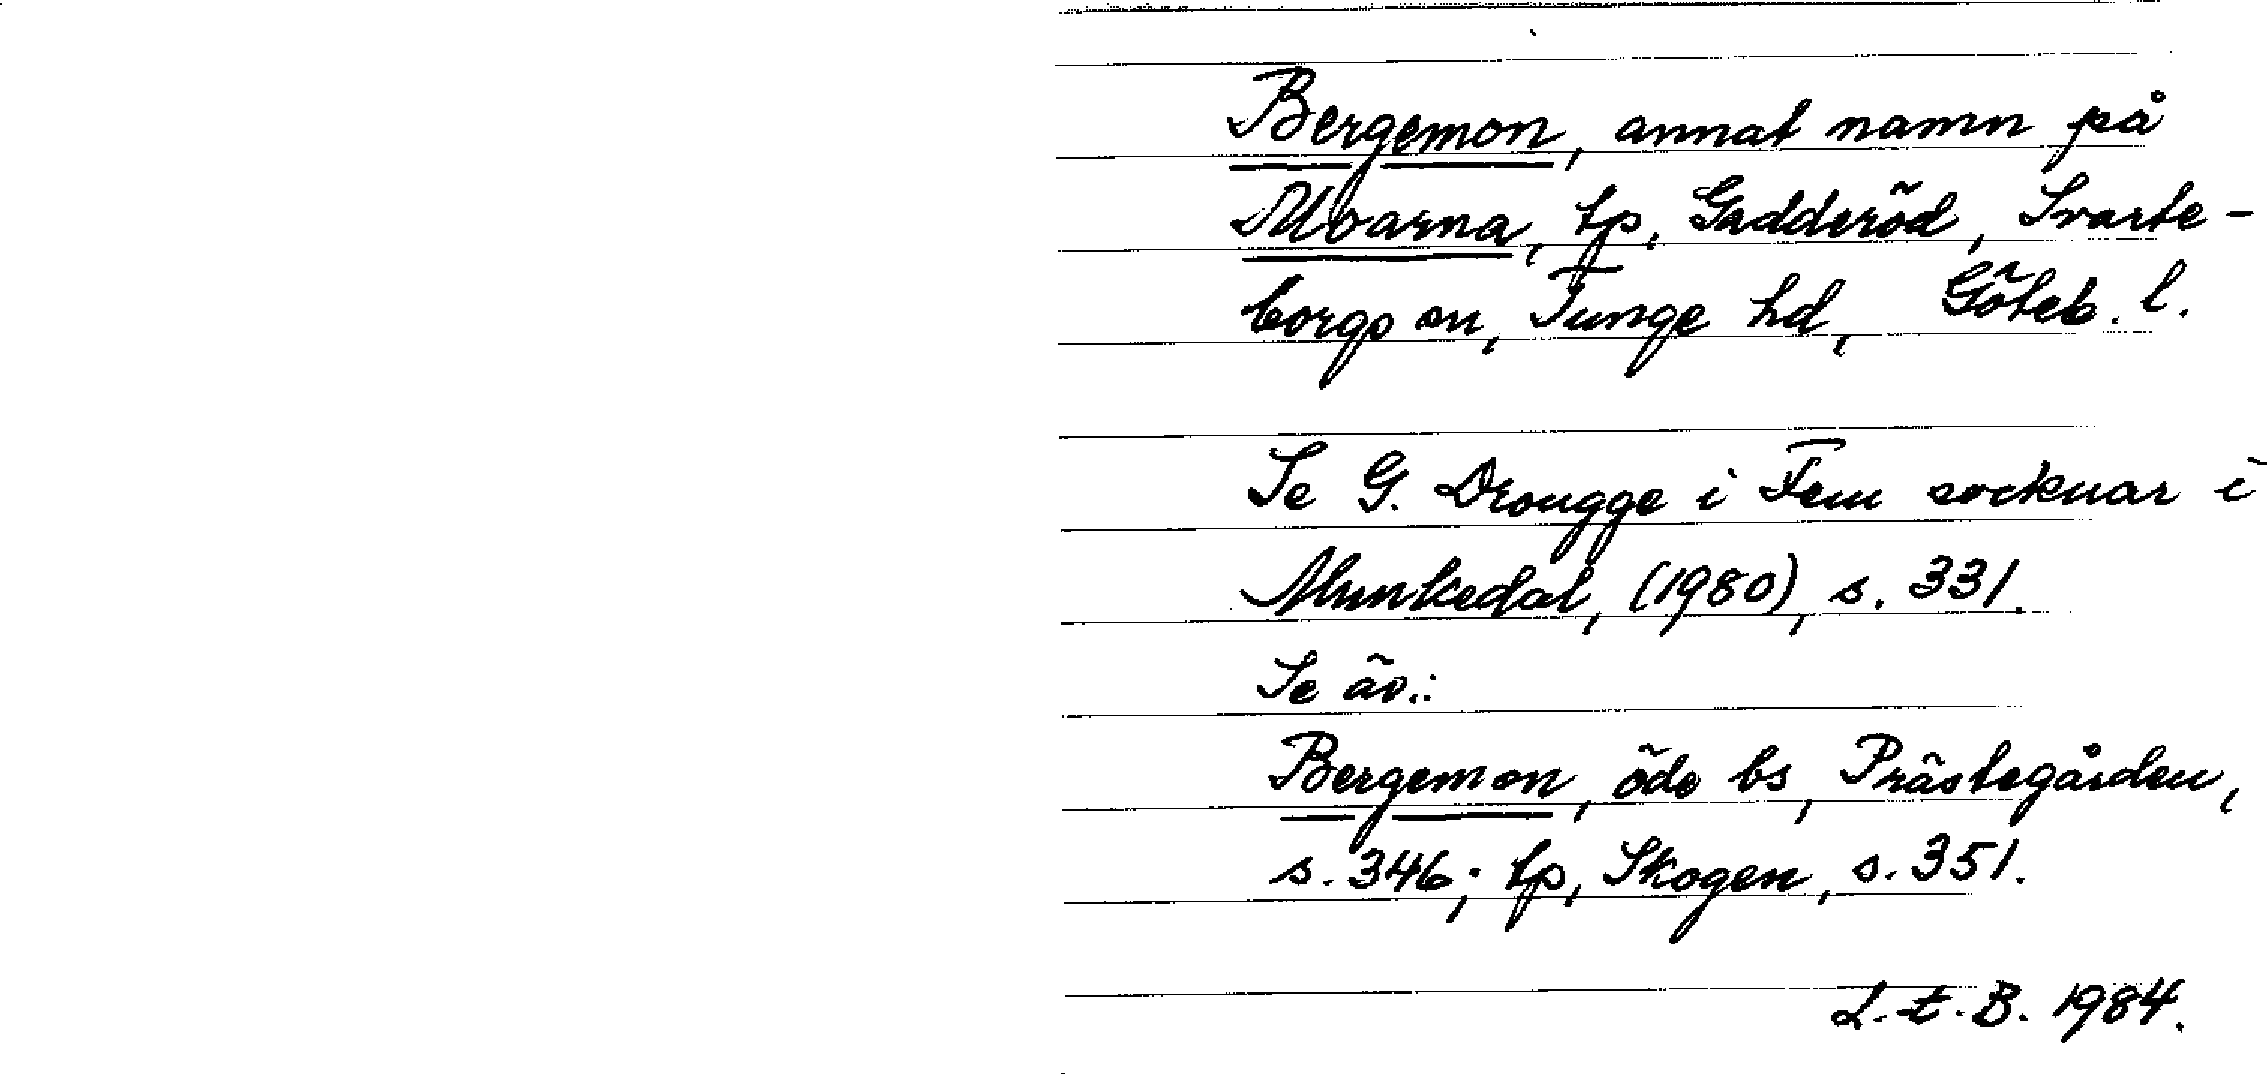 Bergemon, annat namn på
Moarna, tp, Gadderöd, Svarte-
borgs sn, Tunge hd, Göteb. l.
Se G. Drougge i Fem socknar i
Munkedal, (1980), s. 331.
Se äv.:
Bergemon, öde bs, Prästegården,
s. 346; tp, Skogen, s. 351.
L.t.B. 1984.